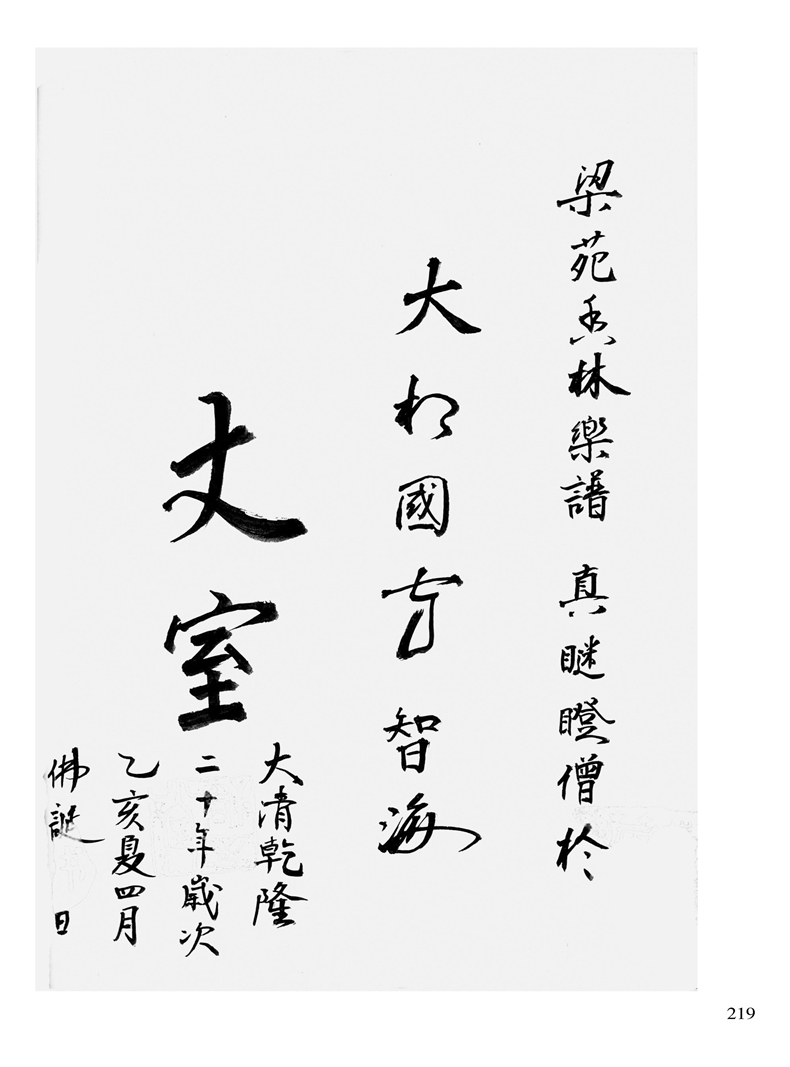 梁苑香林樂譜 真瞇瞪僧於
大相國寺智海
丈室
大清乾隆
二十年歲次
乙亥夏四月
佛誕 日
219